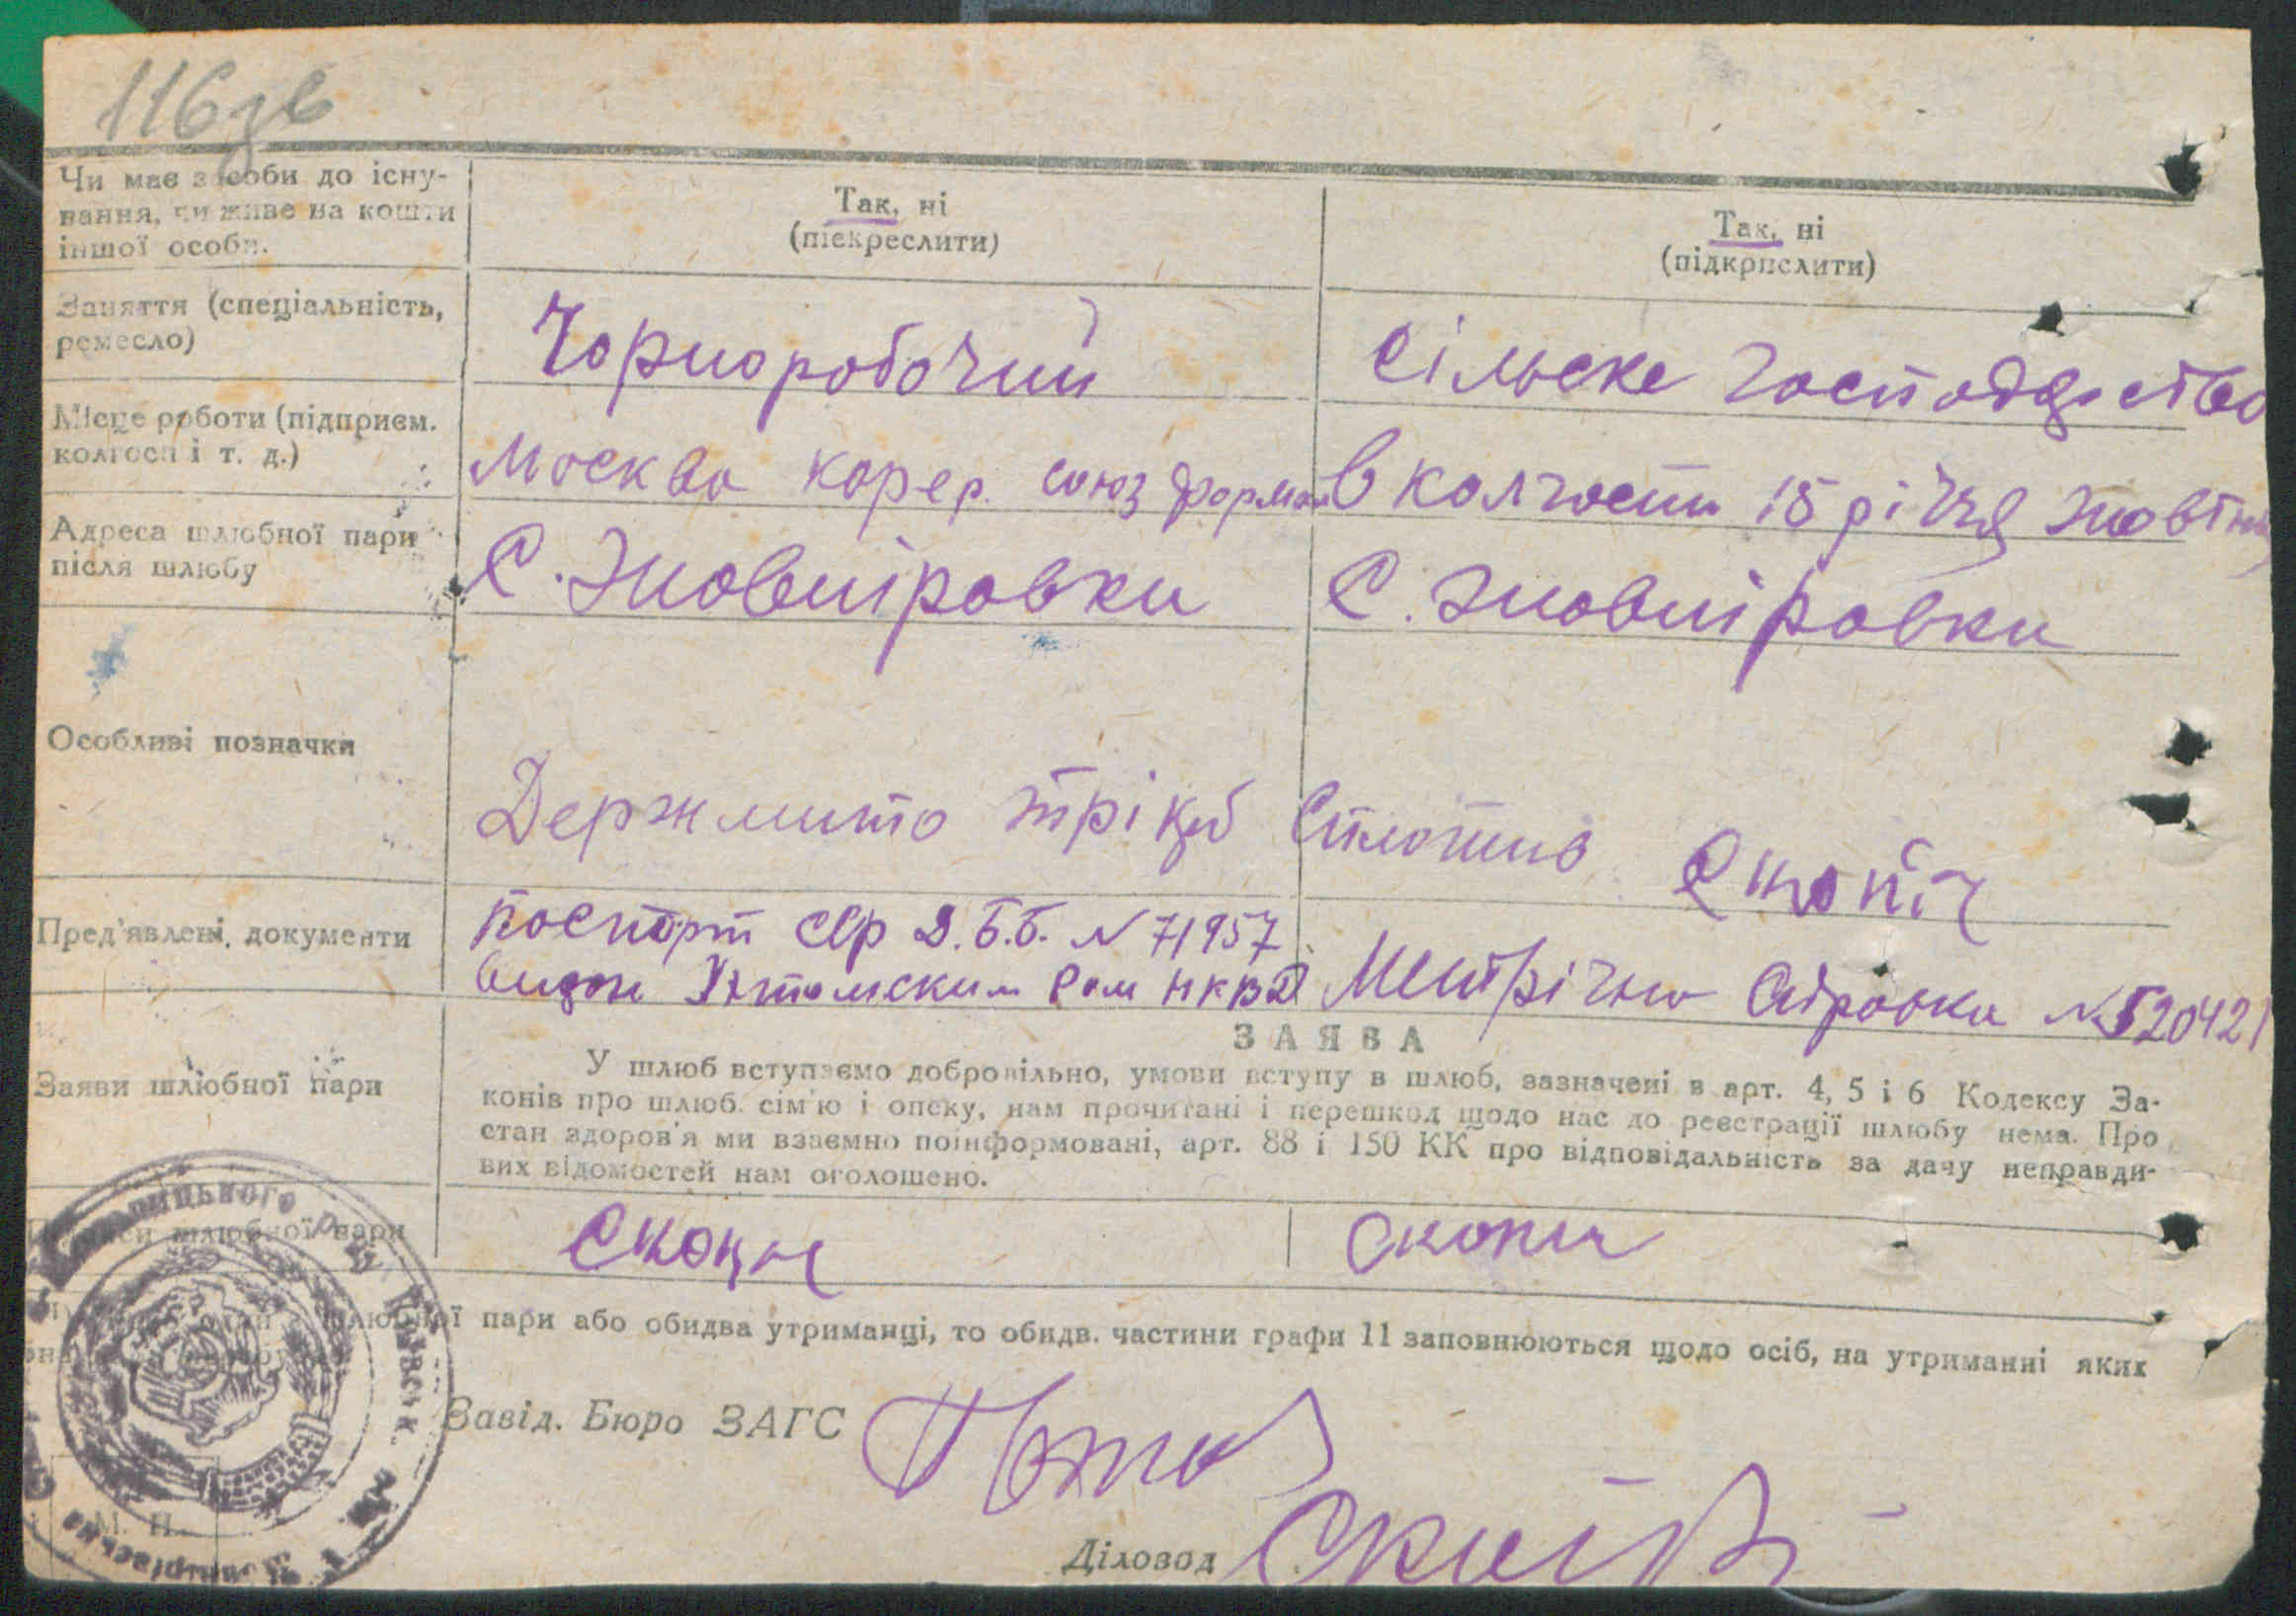 116зв
Чи має засоби до існу-
вання, чи живе на кошти
іншої особи.
Так, ні
(піскреслити)
Так, ні
(підкрпслити)
Заняття (спеціальність,
ремесло)
Чорноробочий
Сільске господарство
Місце роботи (підприєм.
колгосп і т. д.)
Москва союз
в колгоспи 15 річчя
Адреса шлюбної пари
після шлюбу
С. Жовніровки
С. Жовніровки
Особливі позначки
Держмито сплотив
Пред'явлені документи
паспорт N 71957
видан Ухтомским НКВД
Метрічно справки N 520421
Заяви шлюбної пари
ЗАЯВА
У шлюб вступаємо добровільно, умови вступу в шлюб, зазначені в арт. 4, 5 і 6 Кодексу За-
конів про шлюб. сім'ю і опеку, нам прочитані і перешкод щодо нас до реєстрації шлюбу нема. Про
стан здоров'я ми взаємно поінформовані, арт. 88 і 150 КК про відповідальність за дачу неправди-
вих відомостей нам оголошено.
шлюбної пари
Скопич
шлюбної пари або обидва утриманці, то обидв. частини графи 11 заповнюються щодо осіб, на утриманні яких
Завід. Бюро ЗАГС
М. П.
Діловод